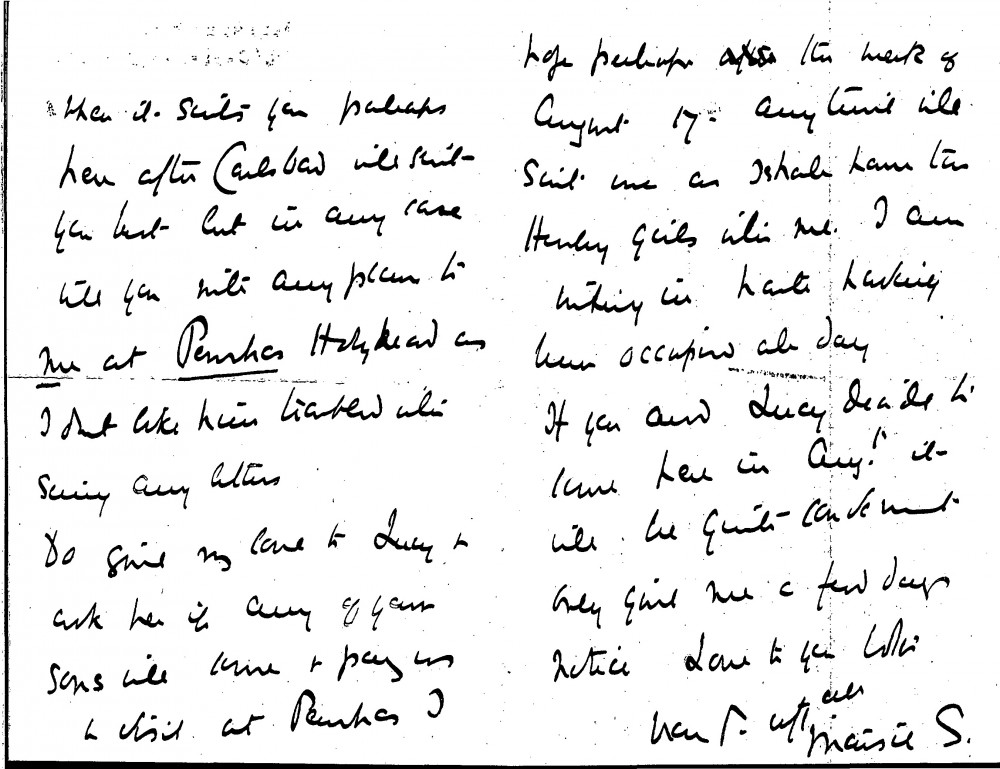 when it suits you perhaps
here after Carlsbad will suit
you best but in any case
will you write any plans to
me at Penrhos Holyhead as
I don't like him troubled with
seeing any letters
Do give my love to Lucy &
ask her if any of your
sons will come & pay us
a visit at Penrhos I
hope perhaps after the week of
August 17. any time will
suit me as I shall have the
Henley girls with me. I am
writing in haste having
been occupied all day
If you and Lucy decide to
come here in Aug! it
will be quite convenient
only give me a few days
notice Love to you both
all
Maisie S.